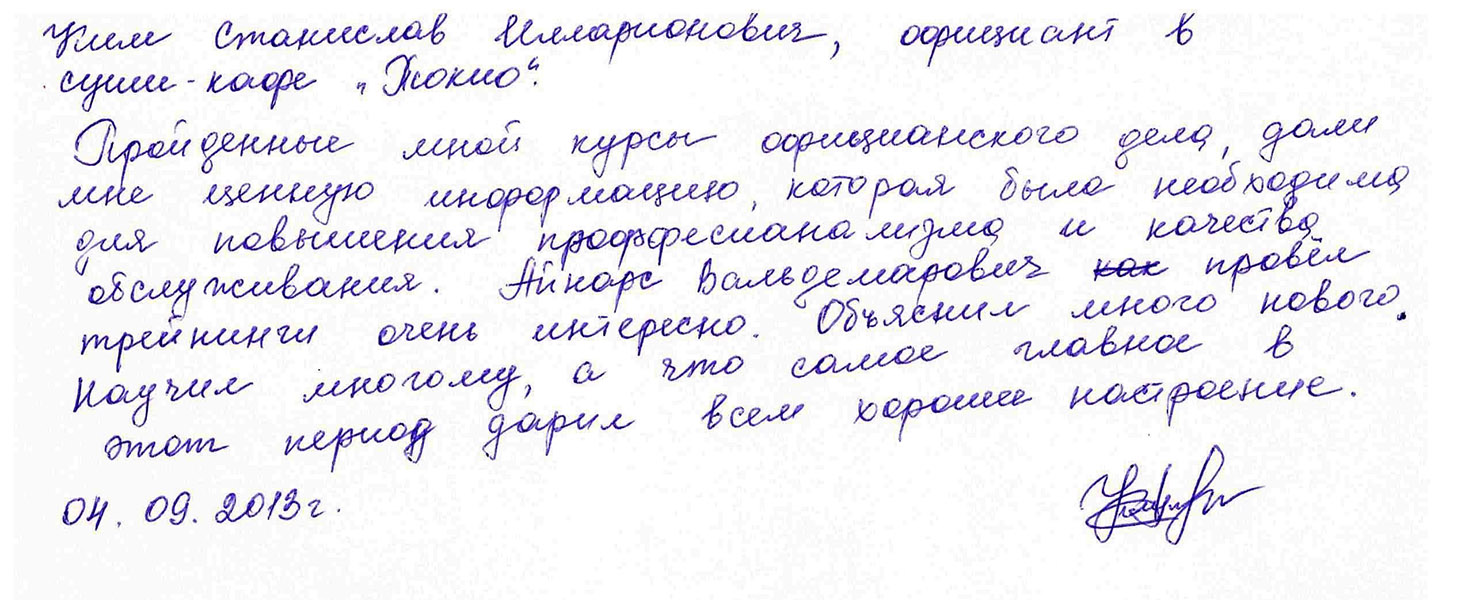 Ким Станислав Илларионович, официант в
суши-кафе „Токио“.
Пройденные мной курсы официанского дела, дали
мне ценную информацию, которая была необходима
для повышения проффесианализма и качества
обслуживания. Айнарс Вальдемарович как провёл
трейнинги очень интересно. Объяснил много нового.
Научил многому, а что самое главное в
этот период дарил всем хорошее настроение.
04. 09. 2013г.